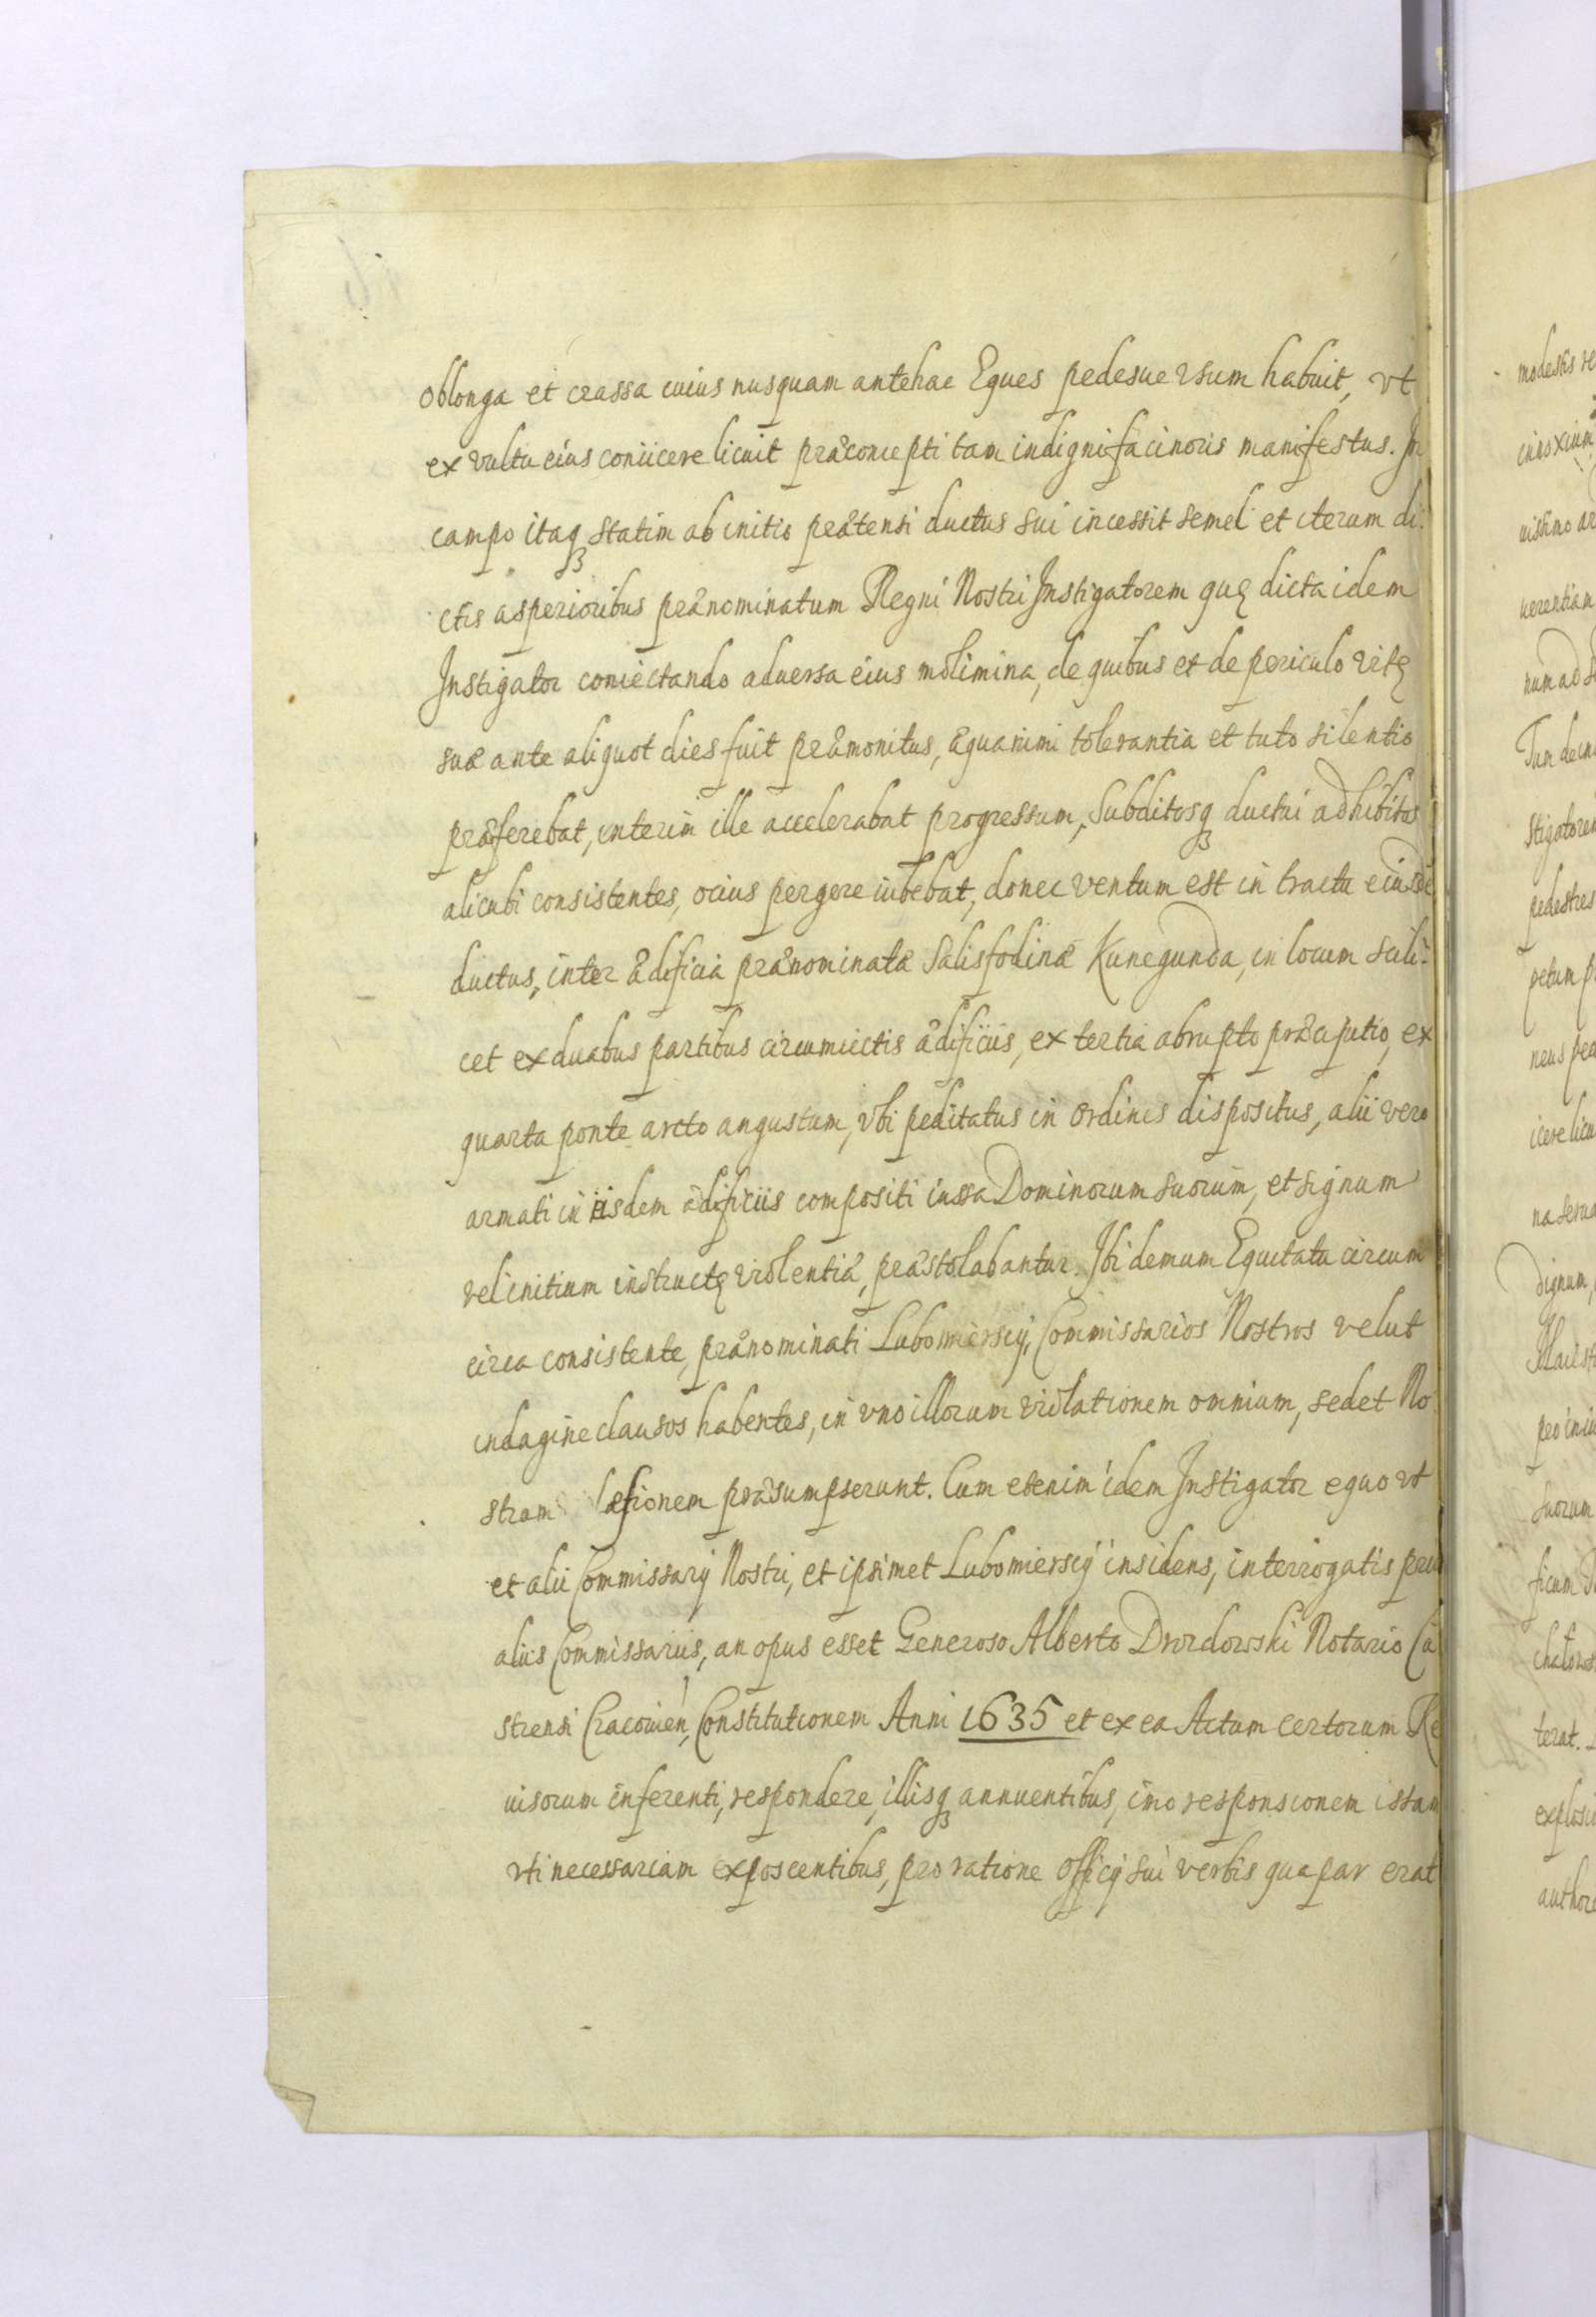 oblonga et crassa cuius nusquam antehac Eques pedesue vsum habuit, vt
ex vultu eius coniicere licuit præconcepti tam indigni facinoris manifestus. In
campo itaq statim ab initio prætensi ductus sui incessit semel et iterum di-
ctis asperioribus prænominatum Regni Nostri Instigatorem quę dicta idem
Instigator coniectando aduersa eius molimina, de quibus et de periculo vitę
suæ ante aliquot dies fuit præmonitus, æquanimi tolerantia et tuto silentio
præferebat, interim ille accelerabat progressum, Subditosq ductui adhibitos
alicubi consistentes, ocius pergere iubebat, donec ventum est in tractu eiusdē
ductus, inter ædificia prænominatæ Salisfodinæ Kunegunda, in locum scili-
cet ex duabus partibus circumiectis ædificiis, ex tertia abrupto præcipitio, ex
quarta ponte arcto angustum, vbi peditatus in ordines dispositus, alii vero
armati in iisdem ædificiis compositi iussa Dominorum suorum, et signum
vel initium instructę violentiæ, præstolabantur. Ibi demum Equitatu circum
circa consistente, prænominati Lubomierscÿ, Commissarios Nostros velut
indagine clausos habentes, in vno illorum violationem omnium, sed et No
stram læsionem præsumpserunt. Cum etenim idem Instigator equo vt
et alii Commissarÿ Nostri, et ipsimet Lubomierscÿ insidens, interrogatis priu
aliis Commissariis, an opus esset Generoso Alberto Drozdowski Notario Ca
strensi Cracouien, Constitutionem Anni 1635 et ex ea Actum certorum Re
uisorum inferenti, respondere, illisq annuentibus, imo responsionem istam
vti necessariam exposcentibus, pro ratione officÿ sui verbis qua par erat
modestis re
innoxium
uissimo ar
uerentiam
num ad
Tum
stigatorem
pedestres
petum p
neus
icere licu
na
dignum,
peo iniu
suorum
ficum
terat.
explosio
authore